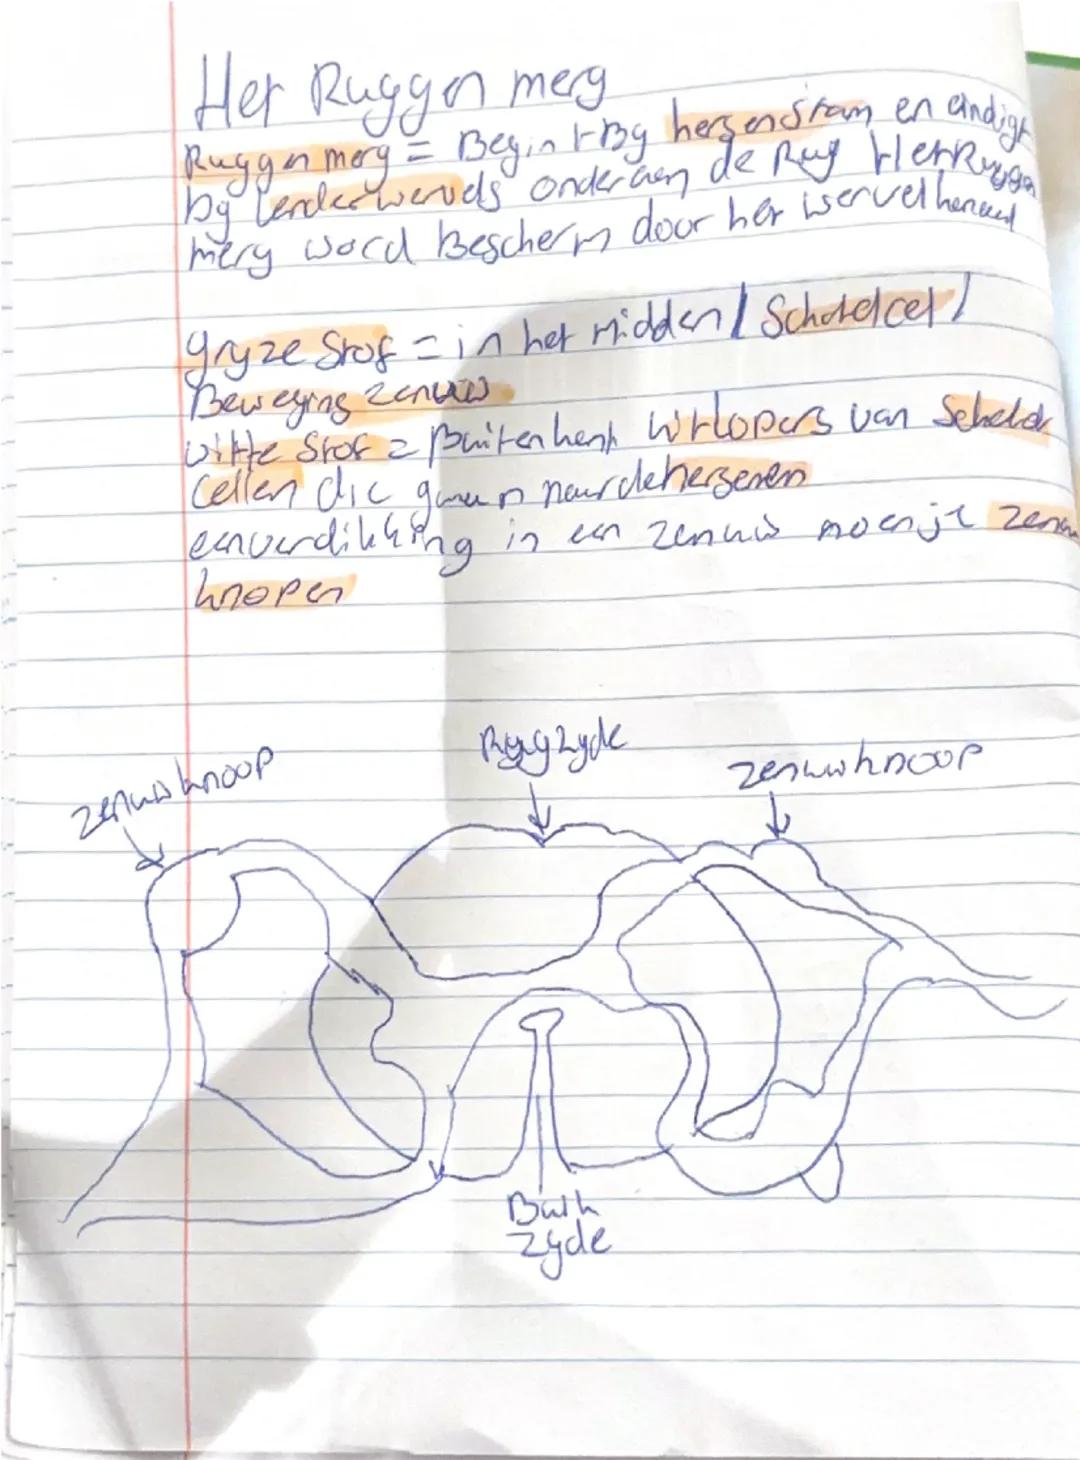 Het Ruggen merg
Ruggen merg = Begint By hersenstam en eindigt
by lenderwervels onderaen de Rug Het Ruggen
merg word Bescherm door het wervelkanaal
gryze Stof = in het midden / Schakelcel /
Beweging zenuw
witte Stof = Buitenkant uitlopers van Schakel
Cellen dic gaan naar de hersenen
een verdikking in een zenuw noem je zenuw
knopen
zenuwknoop
Rugzyde
zenuwknoop
Buik
zyde